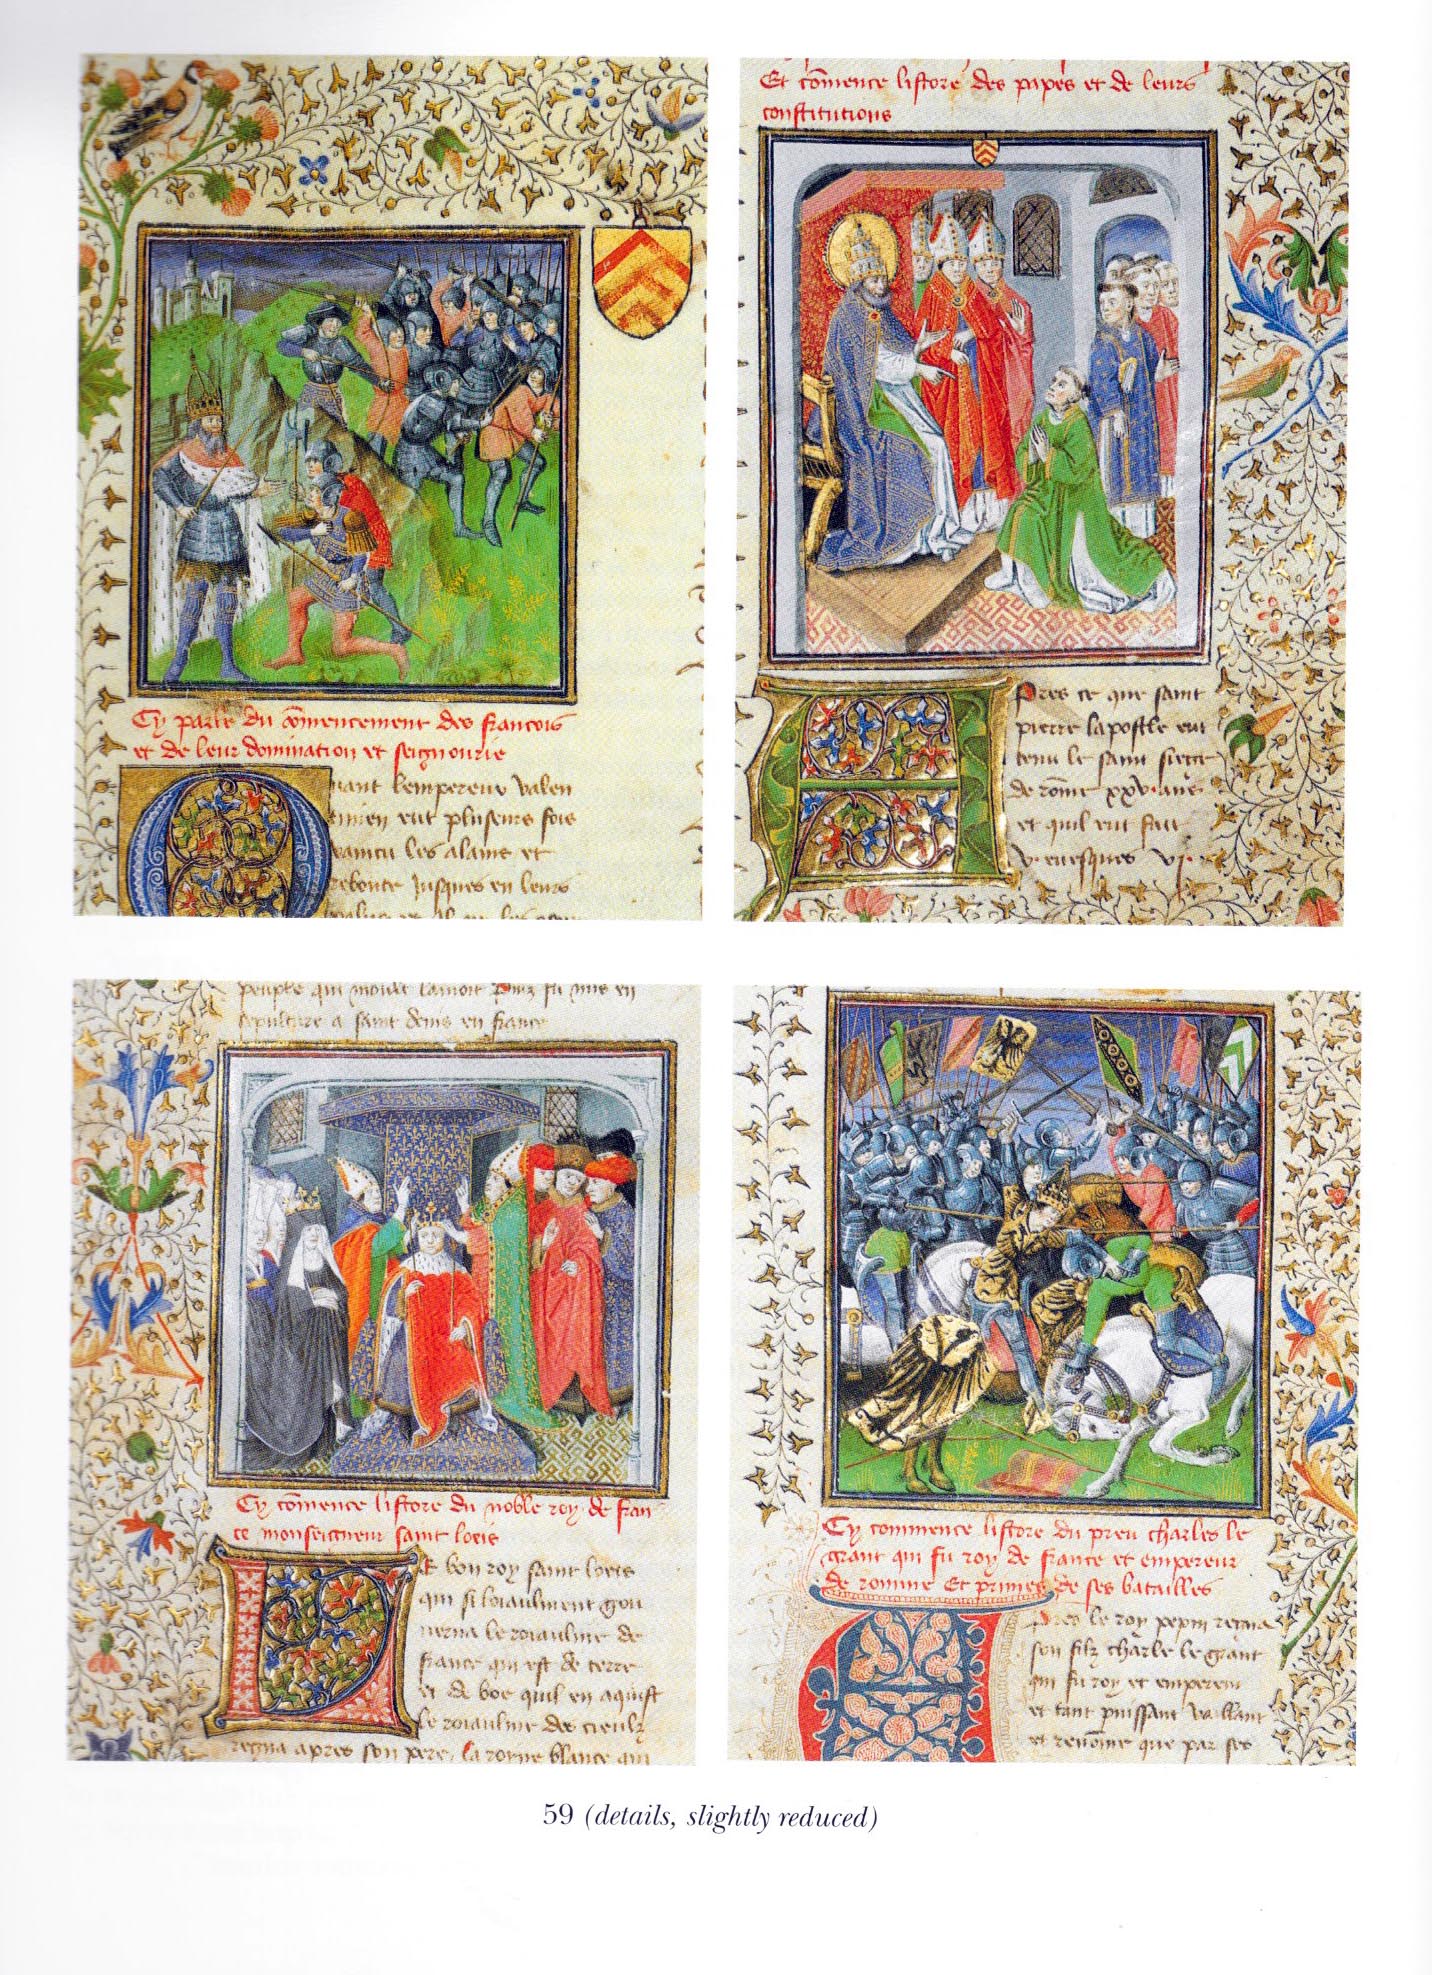 Cy parle du cōmencement des francois
et de leur domination et seignourie
Quant lempereur valen
tinien eut plusieurs fois
vaincu les alains et
reboute jusques en leurs
Et cōmence listore des papes et de leurs
constitutions
Apres ce que saint
pierre lapostle eut
tenu le saint siege
de rōme xxv. ans
et quil eut fait
evesques vj.
peuple qui moult lamoit Puis fu mis en
sepulture a saint denis en france
Cy cōmence listore du noble roy de fran
ce monseigneur saint loeis
Le bon roy saint loeis
qui si loiaulment gou
verna le roiaulme de
france qui est de terre
et de boe quil en aquist
le roiaulme des cieulx
regna apres son pere. la royne blance qui
Cy commence listore du preu charles le
grant qui fu roy de france et empereur
de romme Et primes de ses batailles
Apres le roy pepin regna
son filz charle le grant
qui fu roy et empereur
et tant puissant vaillant
et renōme que par ses
59 (details, slightly reduced)